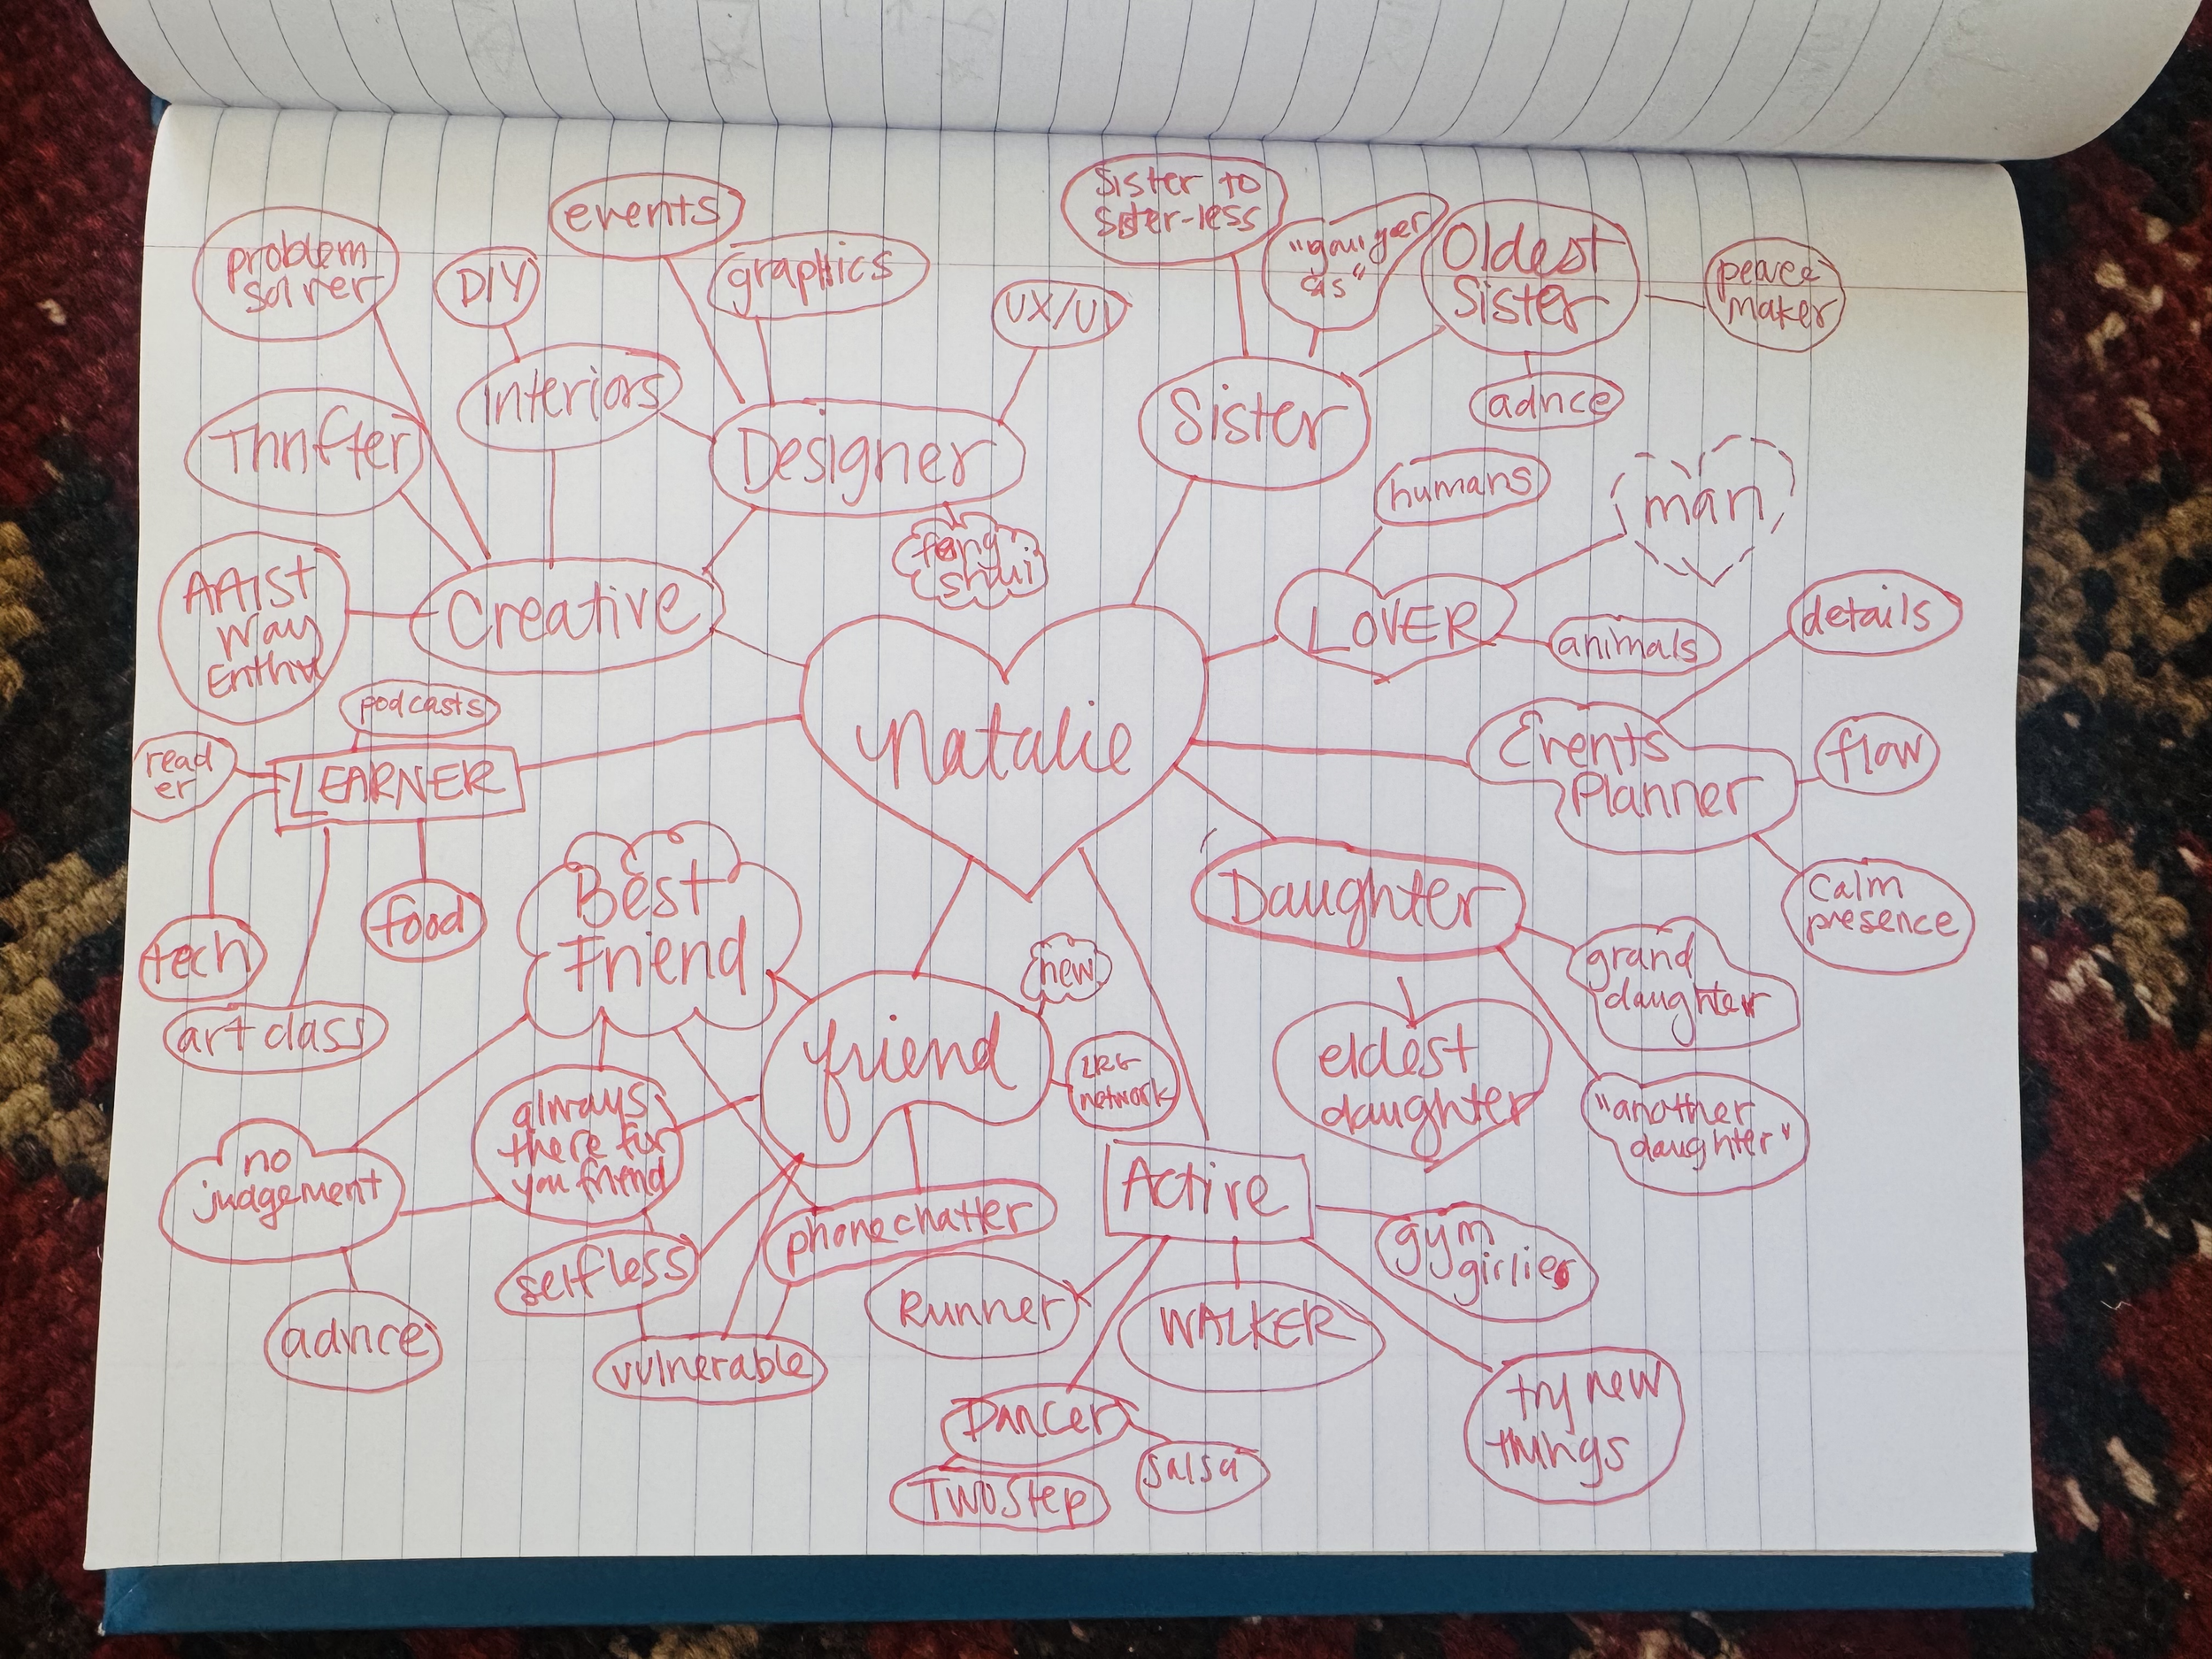 events
Sister to
Sister-less
problem
solver
DIY
graphics
UX/UI
sis"
Oldest
Sister
peace
maker
Interiors
Sister
advice
Thrifter
Designer
humans
man
feng
shui
Artist
Way
Creative
LOVER
animals
details
podcasts
read
er
LEARNER
Natalie
Events
Planner
flow
Best
Friend
Daughter
calm
presence
tech
food
new
grand
daughter
art class
friend
network
eldest
daughter
always
there for
you friend
"another
daughter"
no
judgement
Active
phone chatter
gym
girlies
selfless
Runner
WALKER
advice
vulnerable
try new
things
Dancer
Salsa
Two Step